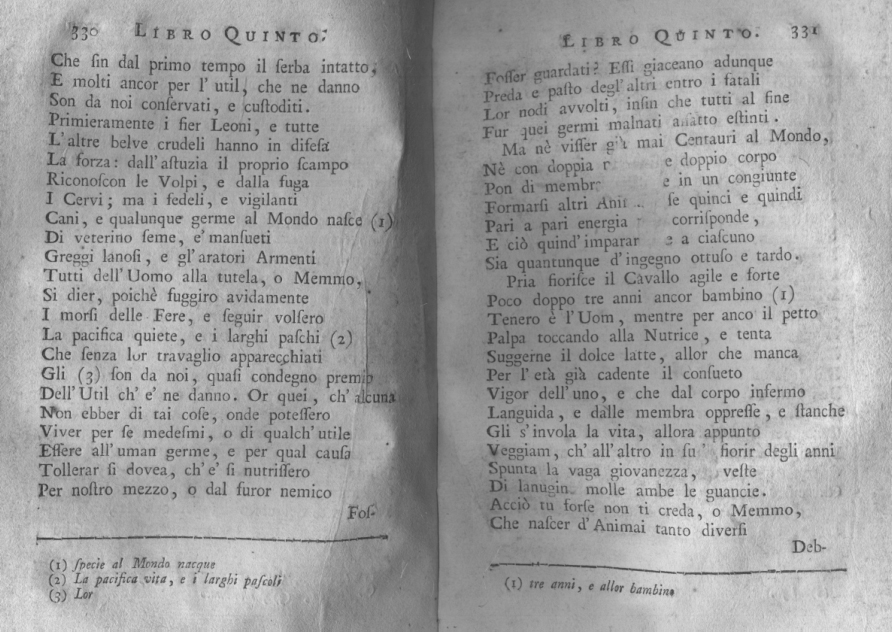 330 LIBRO QUINTO.
Che ſin dal primo tempo il ſerba intatto,
E molti ancor per l' util, che ne danno
Son da noi conſervati, e cuſtoditi.
Primieramente i fier Leoni, e tutte
L'altre belve crudeli hanno in difeſa
La forza: dall'aſtuzia il proprio ſcampo
Riconoſcon le Volpi, e dalla fuga
I Cervi; ma i fedeli, e vigilanti
Cani, e qualunque germe al Mondo naſce (1)
Di veterino ſeme, e' manſueti
Greggi lanoſi, e gl'aratori Armenti
Tutti dell'Uomo alla tutela, o Memmo,
Si dier, poichè fuggiro avidamente
I morſi delle Fere, e ſeguir volſero
La pacifica quiete, e i larghi paſchi (2)
Che ſenza lor travaglio apparecchiati
Gli (3) ſon da noi, quaſi condegno premio
Dell'Util ch' e' ne danno. Or quei, ch' alcuna
Non ebber di tai coſe, onde poteſſero
Viver per ſe medeſmi, o di qualch'utile
Eſſere all'uman germe, e per qual cauſa
Tollerar ſi dovea, ch'e' ſi nutriſſero
Per noſtro mezzo, o dal furor nemico
Foſ-
(1) ſpecie al Mondo nacque
(2) La pacifica vita, e i larghi paſcoli
(3) Lor
LIBRO QUINTO. 331
Foſſer guardati? Eſſi giaceano adunque
Preda e paſto degl'altri entro i fatali
Lor nodi avvolti, inſin che tutti al fine
Fur quei germi malnati affatto eſtinti.
Ma nè viſſer già mai Centauri al Mondo,
Nè con doppia e doppio corpo
Pon di e in un congiunte
Formarſi altri ſe quinci e quindi
Pari a pari energia corriſponde,
E ciò quind'imparar a ciaſcuno
Sia quantunque d'ingegno ottuſo e tardo.
Pria fioriſce il Cavallo agile e forte
Poco doppo tre anni ancor bambino (1)
Tenero è l'Uom, mentre per anco il petto
Palpa toccando alla Nutrice, e tenta
Suggerne il dolce latte, allor che manca
Per l'età già cadente il conſueto
Vigor dell'uno, e che dal corpo infermo
Languida, e dalle membra oppreſſe, e ſtanche
Gli s'invola la vita, allora appunto
Veggiam, ch'all'altro in ſu fiorir degli anni
Spunta la vaga giovanezza, veſte
Di lanugin molle ambe le guancie.
Acciò tu forſe non ti creda, o Memmo,
Che naſcer d'Animai tanto diverſi
Deb-
(1) tre anni, e allor bambino